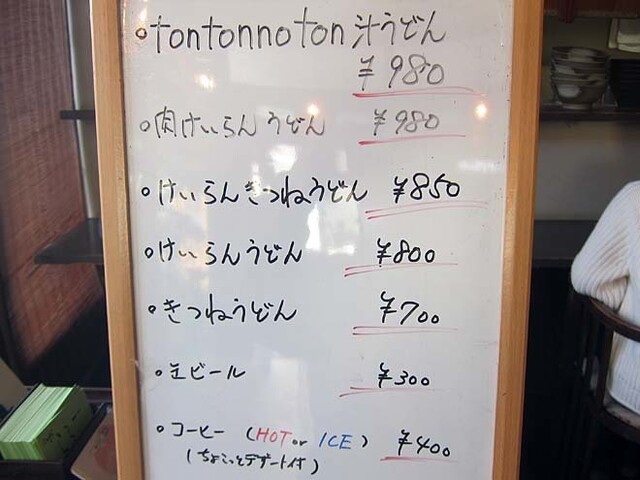 ○tontonnoton 汁うどん
¥980
○肉けいらんうどん ¥980
○けいらんきつねうどん ¥850
○けいらんうどん ¥800
○きつねうどん ¥700
○缶ビール ¥300
○コーヒー (HOT or ICE) ¥400
(ちょこっとデザート付)